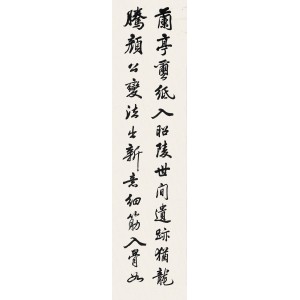 蘭亭繭紙入昭陵世間遺跡猶龍
騰顏公變法出新意細筋入骨如